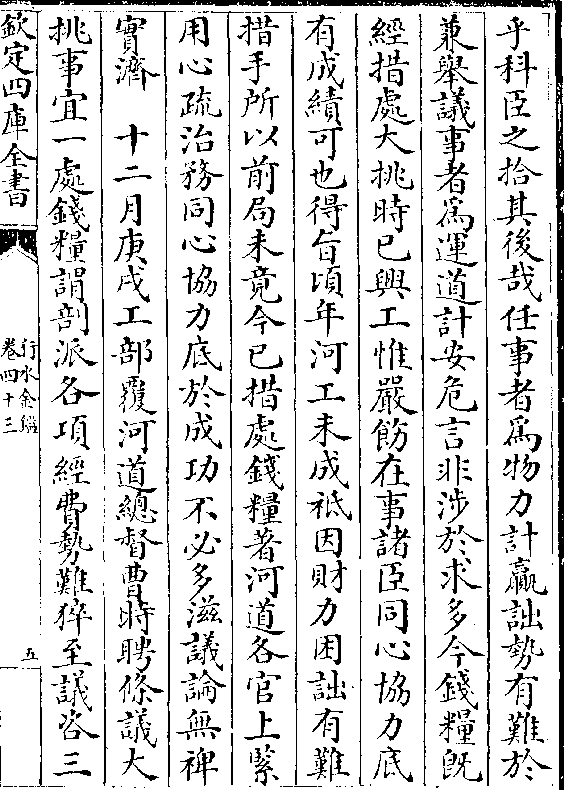 乎科臣之拾其後哉任事者爲物力計贏詘勢有難於
兼舉議事者爲運道計安危言非涉於求多今錢糧旣
經措處大挑時已興工惟嚴飭在事諸臣同心協力底
有成績可也得旨頃年河工未成祇因財力困詘有難
措手所以前局未竟今已措處錢糧著河道各官上緊
用心疏治務同心協力底於成功不必多滋議論無裨
實濟　十二月庚戌工部覆河道總督曹時聘條議大
挑事宜一處錢糧謂剖派各項經費勢難猝至議咨三
欽定四庫全書
行水金鑑
卷四十三
五